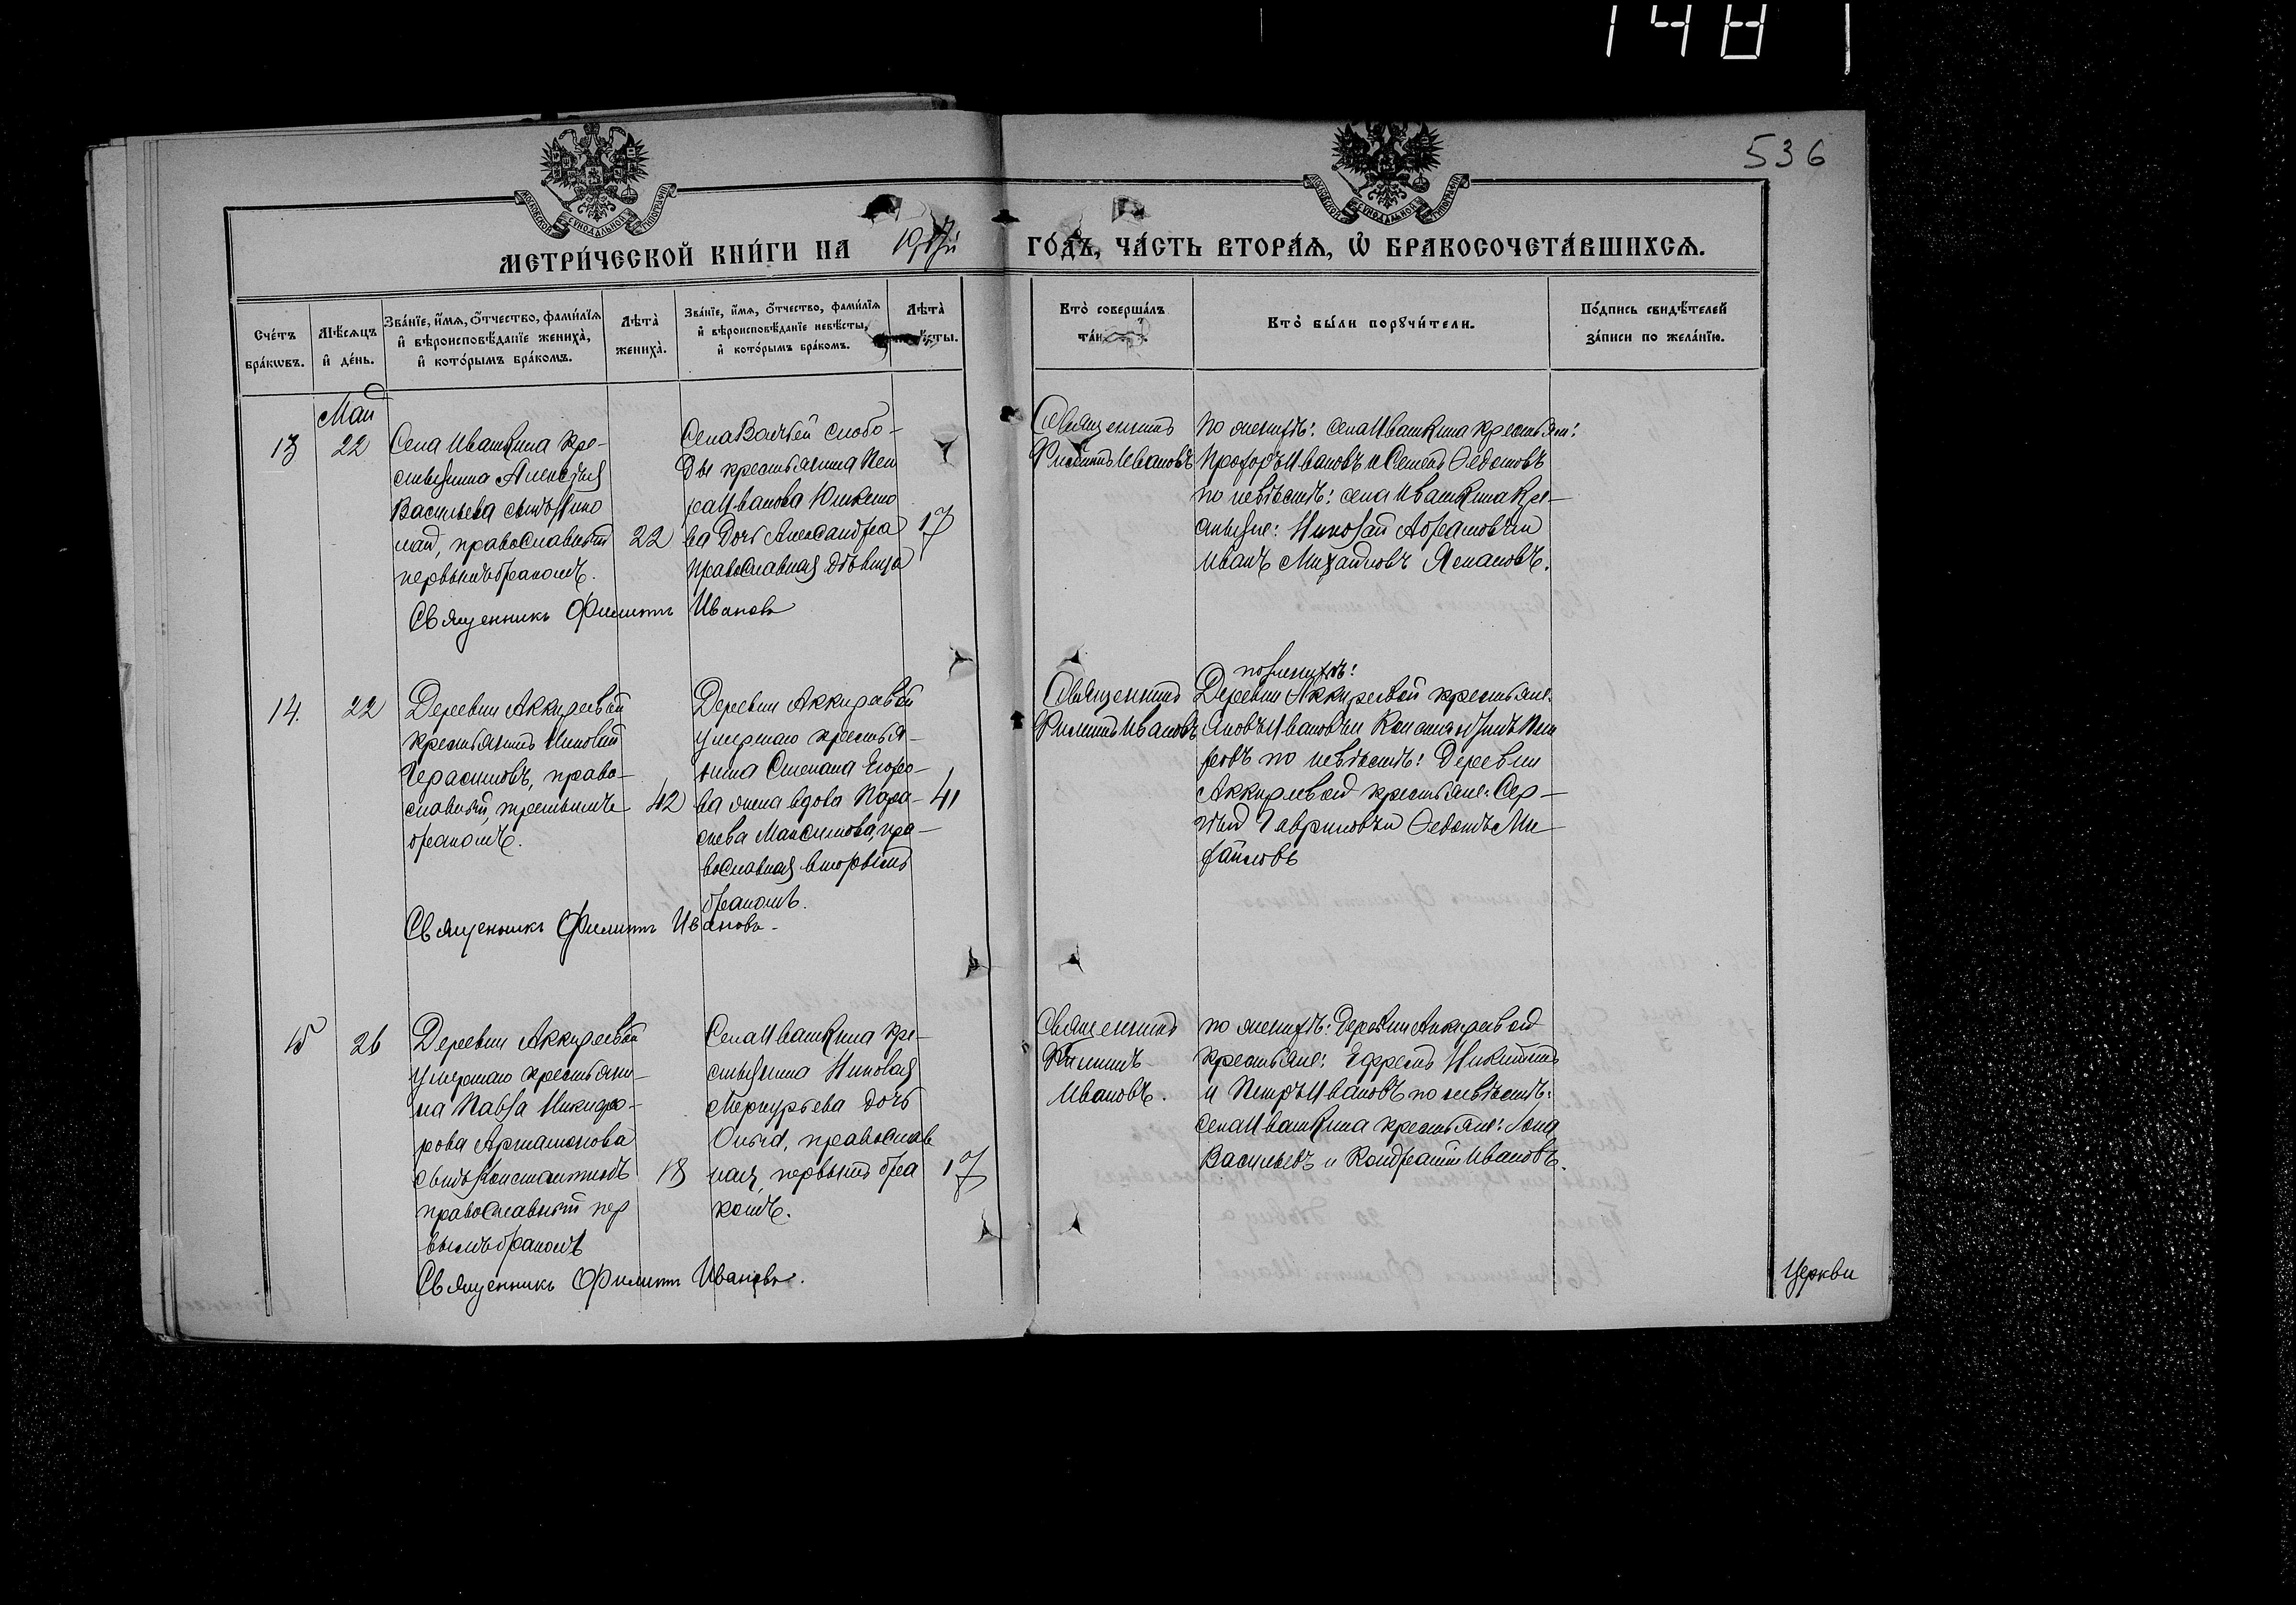 148
536
МОСКОВСКОЙ СѴНОДАЛЬНОЙ ТИПОГРАФІИ
МОСКОВСКОЙ СѴНОДАЛЬНОЙ ТИПОГРАФІИ
МЕТРИ́ЧЕСКОЙ КНИ́ГИ НА
ГО́ДЪ, ЧА́СТЬ ВТОРА́Ѧ, Ѡ҆ БРАКОСОЧЕТА́ВШИХСѦ.
Сче́тъ бра́кѡвъ.
Мѣ́сѧцъ и҆ де́нь.
Зва́нїе, и҆́мѧ, о҆́тчество, фами́лїѧ и҆ вѣроисповѣ́данїе жениха̀, и҆ кото́рымъ бра́комъ.
Лѣта̀ жениха̀.
Зва́нїе, и҆́мѧ, о҆́тчество, фами́лїѧ и҆ вѣроисповѣ́данїе невѣ́сты, и҆ кото́рымъ бра́комъ.
Лѣта̀
Кто̀ соверша́лъ
Кто̀ бы́ли порꙋчи́тели.
По́дпись свидѣ́телей за́писи по жела́нїю.
Май
13
22
Села Ивашкина кре-
стьянина Алексѣя
Васильева сынъ
православный
первымъ бракомъ.
22
Села Волчьей слобо-
ды крестьянина Пет
ра Иванова
ва дочь Александра
православная дѣвица
17
Священникъ
Филиппъ Ивановъ
по женихѣ: села Ивашкина крестьяне:
Прохоръ Ивановъ и Семенъ Ѳедотовъ
по невѣстѣ: села Ивашкина кре-
стьяне: Николай Абрамовъ и
Иванъ Михайловъ
Священникъ Филиппъ Ивановъ
14.
22
Деревни Аккиреевой
крестьянинъ Николай
Герасимовъ, право-
славный, третьимъ
бракомъ.
42
Деревни Аккиреевой
умершаго крестья-
нина Степана Егоро-
ва жена вдова Пара-
скева Максимова, пра-
вославная вторымъ
бракомъ.
41
Священникъ
Филиппъ Ивановъ
по женихѣ:
Деревни Аккиреевой крестьяне:
Яковъ Ивановъ и Константинъ Пет
ровъ по невѣстѣ: деревни
Аккиреевой крестьяне: Сер-
гѣй Гавриловъ и Ѳедотъ Ми-
хайловъ
Священникъ Филиппъ Ивановъ.
15
26
Деревни Аккиреевой
умершаго крестьяни-
на Павла Никифо-
рова Артамонова
сынъ Константинъ
православный пер
вымъ бракомъ
18
Села Ивашкина кре-
стьянина Николая
Меркурьева дочь
Ольга, православ
ная, первымъ бра
комъ.
17
Священникъ
Филиппъ
Ивановъ.
по женихѣ: деревни Аккиреевой
крестьяне: Ефремъ Никитинъ
и Петръ Ивановъ по невѣстѣ:
села Ивашкина крестьяне: Іона
Васильевъ и Кондратій Ивановъ.
Священникъ Филиппъ Ивановъ.
Церкви